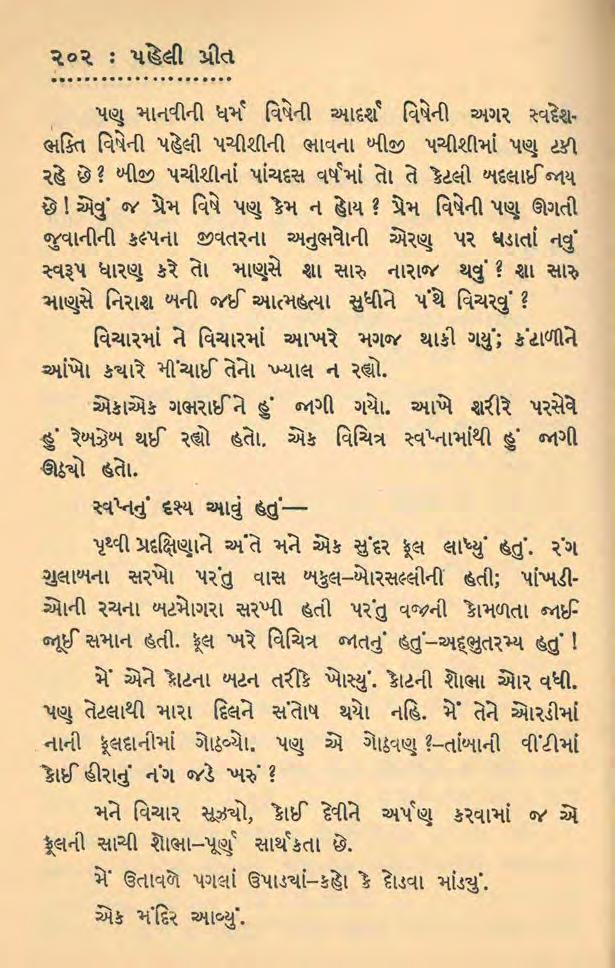 ૨૦૨ : પહેલી પ્રીત
પણ માનવીની ધર્મ વિષેની આદર્શ વિષેની અગર સ્વદેશ-
ભક્તિ વિષેની પહેલી પચીશીની ભાવના બીજી પચીશીમાં પણ ટકી
રહે છે? બીજી પચીશીનાં પાંચદસ વર્ષમાં તો તે કેટલી બદલાઈ જાય
છે! એવું જ પ્રેમ વિષે પણ કેમ ન હોય? પ્રેમ વિષેની પણ ઊગતી
જુવાનીની કલ્પના જીવતરના અનુભવોની એરણ પર ઘડાતાં નવું
સ્વરૂપ ધારણ કરે તો માણસે શા સારુ નારાજ થવું? શા સારુ
માણસે નિરાશ બની જઈ આત્મહત્યા સુધીને પંથે વિચરવું?
વિચારમાં ને વિચારમાં આખરે મગજ થાકી ગયું; કંટાળીને
આંખો ક્યારે મીંચાઈ તેનો ખ્યાલ ન રહ્યો.
એકાએક ગભરાઈને હું જાગી ગયો. આખે શરીરે પરસેવે
હું રેબઝેબ થઈ રહ્યો હતો. એક વિચિત્ર સ્વપ્નામાંથી હું જાગી
ઊઠ્યો હતો.
સ્વપ્નનું દૃશ્ય આવું હતું—
પૃથ્વી પ્રદક્ષિણાને અંતે મને એક સુંદર ફૂલ લાધ્યું હતું. રંગ
ગુલાબના સરખો પરંતુ વાસ બકુલ–બોરસલ્લીની હતી; પાંખડી-
ઓની રચના બટમોગરા સરખી હતી પરંતુ વજની કોમળતા જાઈ-
જૂઈ સમાન હતી. ફૂલ ખરે વિચિત્ર જાતનું હતું–અદ્‌ભુતરમ્ય હતું!
મેં એને કોટના બટન તરીકે ખોસ્યું. કોટની શોભા ઓર વધી.
પણ તેટલાથી મારા દિલને સંતોષ થયો નહિ. મેં તેને ઓરડીમાં
નાની ફૂલદાનીમાં ગોઠવ્યો. પણ એ ગોઠવણ?–તાંબાની વીંટીમાં
કોઈ હીરાનું નંગ જડે ખરું?
મને વિચાર સૂઝ્યો, કોઈ દેવીને અર્પણ કરવામાં જ એ
ફૂલની સાચી શોભા–પૂર્ણ સાર્થકતા છે.
મેં ઉતાવળે પગલાં ઉપાડ્યાં–કહો કે દોડવા માંડ્યું.
એક મંદિર આવ્યું.